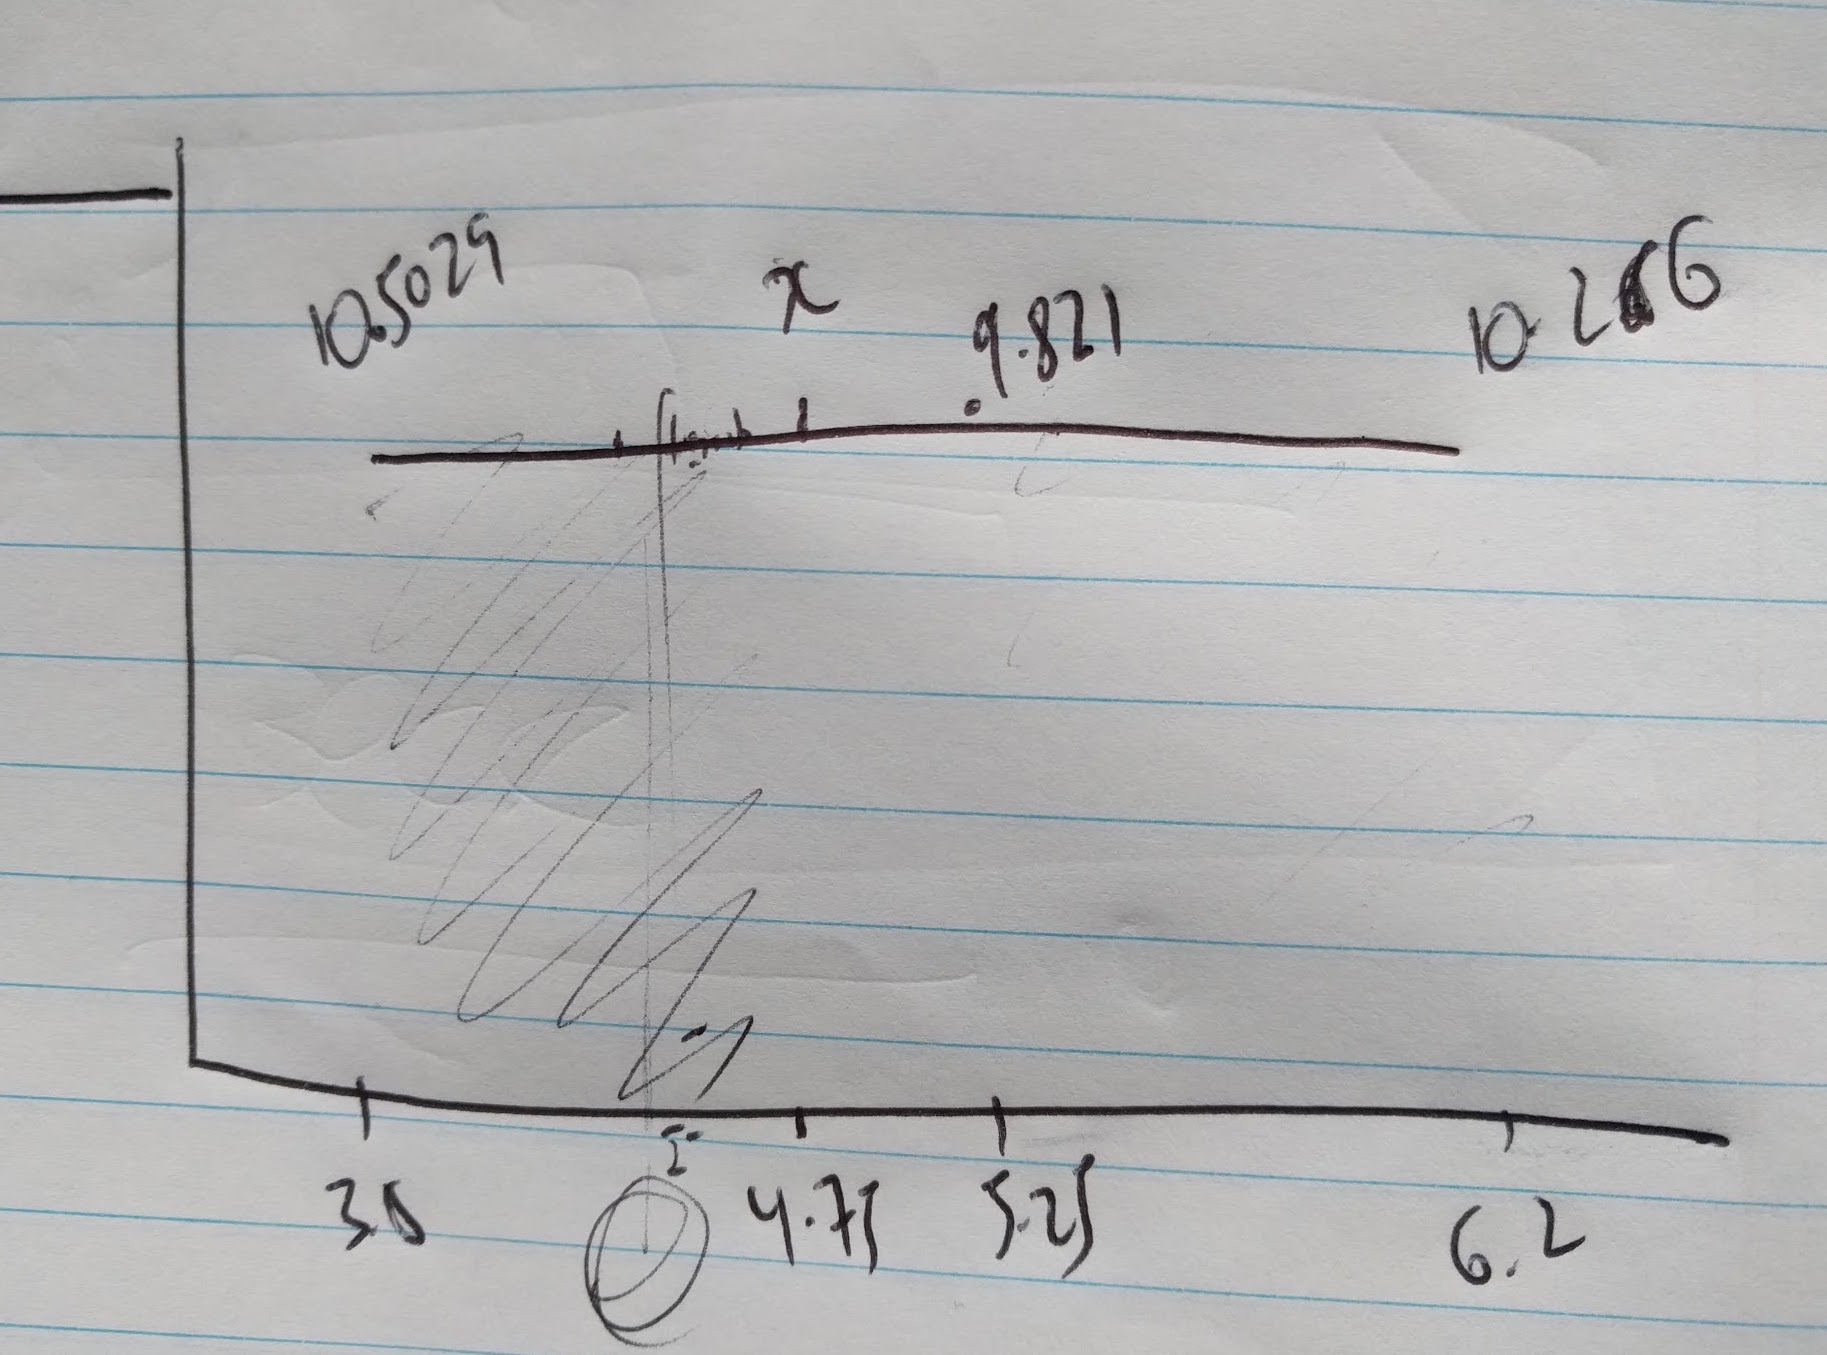 10.5029 x 9.821 10.2 6
4.75 5.25 6.2